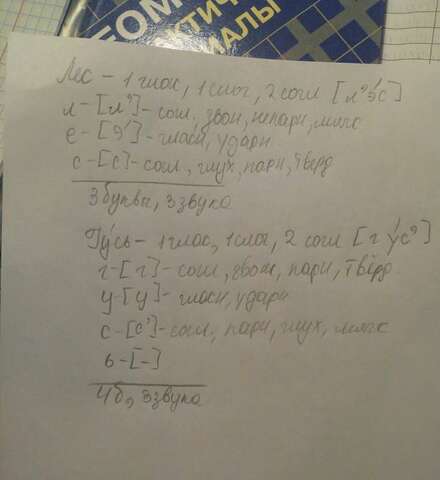 Лес – 1 глас, 1 слог, 2 согл [л'э́с]
л – [л'] – согл, звон, непарн, мягк
е – [э́] – гласн, ударн
с – [с] – согл, глух, парн, твёрд
3 буквы, 3 звука
Гу́сь – 1 глас, 1 слог, 2 согл [гу́с']
г – [г] – согл, звон, парн, твёрд
у – [у] – гласн, ударн
с – [с'] – согл, парн, глух, мягк
ь – [–]
4 б, 3 звука